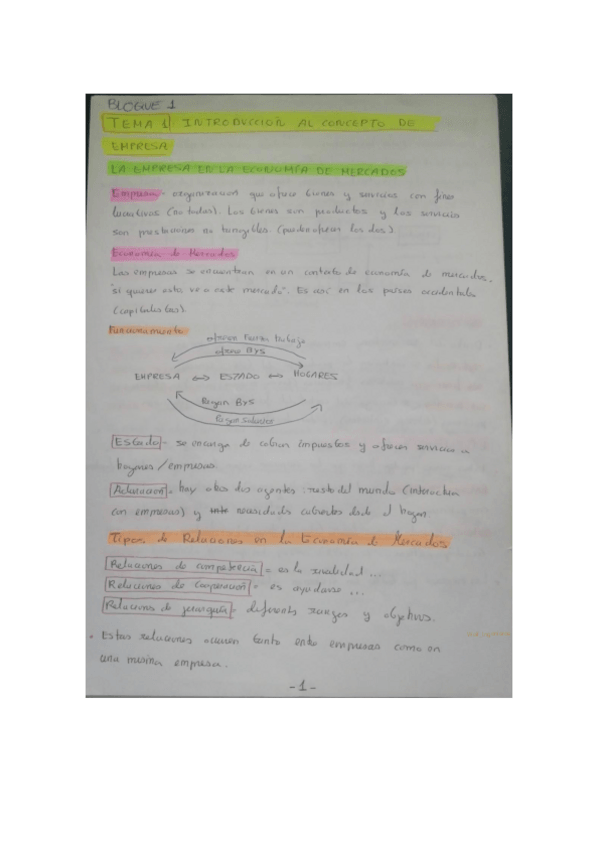 BLOQUE 1
TEMA 1: INTRODUCCIÓN AL CONCEPTO DE
EMPRESA
LA EMPRESA EN LA ECONOMÍA DE MERCADOS
Empresa = organización que ofrece bienes y servicios con fines
lucrativos (no todas). Los bienes son productos y los servicios
son prestaciones no tangibles. (pueden ofrecer los dos)
Economía de Mercados
Las empresas se encuentran en un contexto de economía de mercados.
"si quieres esto ve a este mercado". Es así en los países occidentales
(capitalistas).
Funcionamiento
ofrecen fuerza trabajo
ofrece BYS
EMPRESA ↔ ESTADO ↔ HOGARES
Pagan BYS
Pagan salarios
Estado = se encarga de cobrar impuestos y ofrecer servicios a
hogares/empresas.
Aclaración = hay otros dos agentes: resto del mundo (interactúa
con empresas) y necesidades cubiertas desde el hogar.
Tipos de Relaciones en la Economía de Mercados
Relaciones de competencia = es la rivalidad ...
Relaciones de Cooperación = es ayudarse ...
Relaciones de jerarquía = diferentes rangos y objetivos.
• Estas relaciones ocurren tanto entre empresas como en
una misma empresa.
-1-